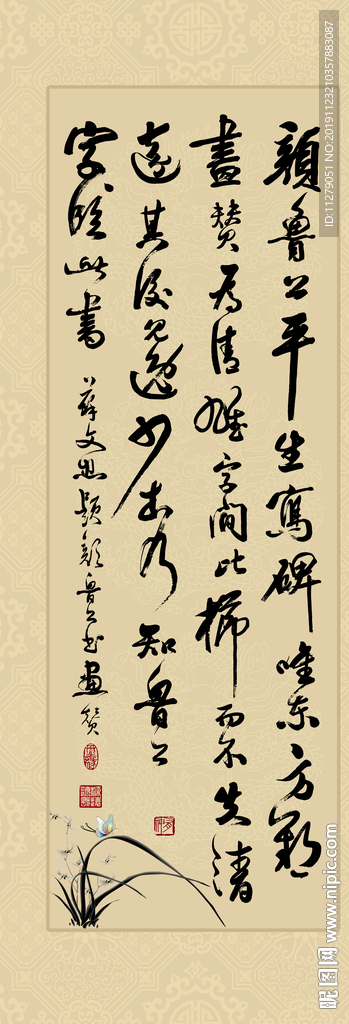 顏魯公平生寫碑唯東方朔
畫贊為清雄字間比櫛而不失清
遠其後見逸少本乃知魯公
字〻臨此書
蘇文忠題顏魯公書畫贊
ID:11279051 NO:20191123210357883087
昵图网 www.nipic.com